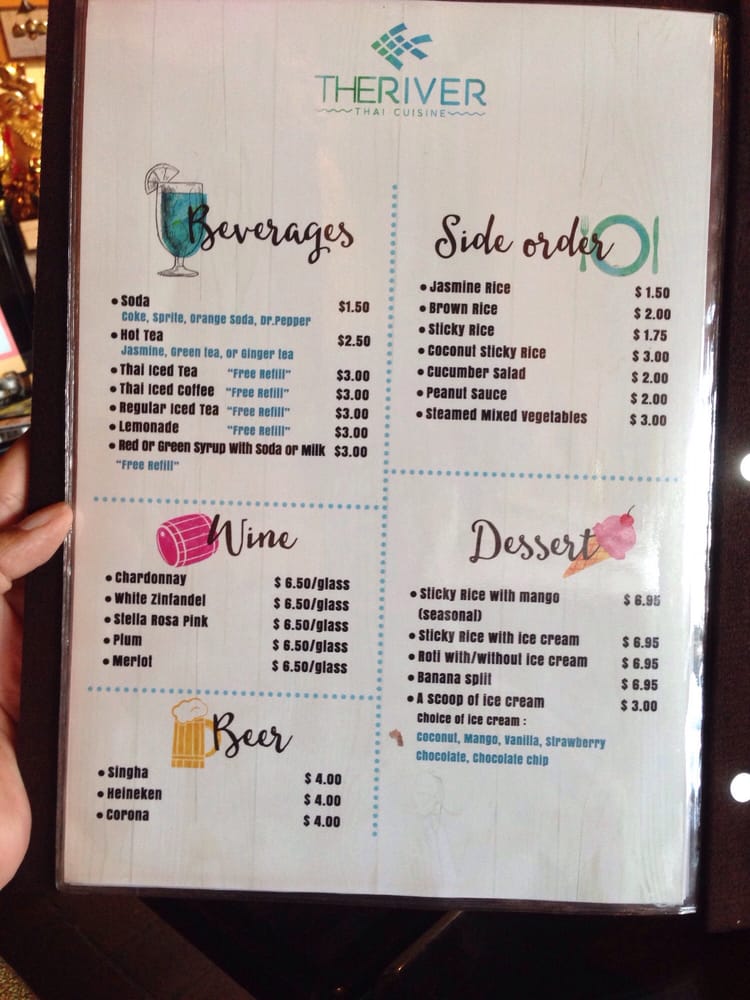 THERIVER
THAI CUISINE
Beverages
• Soda $1.50
Coke, Sprite, Orange Soda, Dr.Pepper
• Hot Tea $2.50
Jasmine, Green tea, or Ginger tea
• Thai Iced Tea "Free Refill" $3.00
• Thai Iced Coffee "Free Refill" $3.00
• Regular Iced Tea "Free Refill" $3.00
• Lemonade "Free Refill" $3.00
• Red Or Green Syrup with Soda or Milk $3.00
"Free Refill"
Wine
• Chardonnay $ 6.50/glass
• White Zinfandel $ 6.50/glass
• Stella Rosa Pink $ 6.50/glass
• Plum $ 6.50/glass
• Merlot $ 6.50/glass
Beer
• Singha $ 4.00
• Heineken $ 4.00
• Corona $ 4.00
Side order
• Jasmine Rice $ 1.50
• Brown Rice $ 2.00
• Sticky Rice $ 1.75
• Coconut Sticky Rice $ 3.00
• Cucumber Salad $ 2.00
• Peanut Sauce $ 2.00
• Steamed Mixed Vegetables $ 3.00
Dessert
• Sticky Rice with mango $ 6.95
(seasonal)
• Sticky Rice with ice cream $ 6.95
• Roti with/without ice cream $ 6.95
• Banana split $ 6.95
• A scoop of ice cream $ 3.00
Choice of ice cream :
Coconut, Mango, Vanilla, Strawberry
Chocolate, Chocolate chip